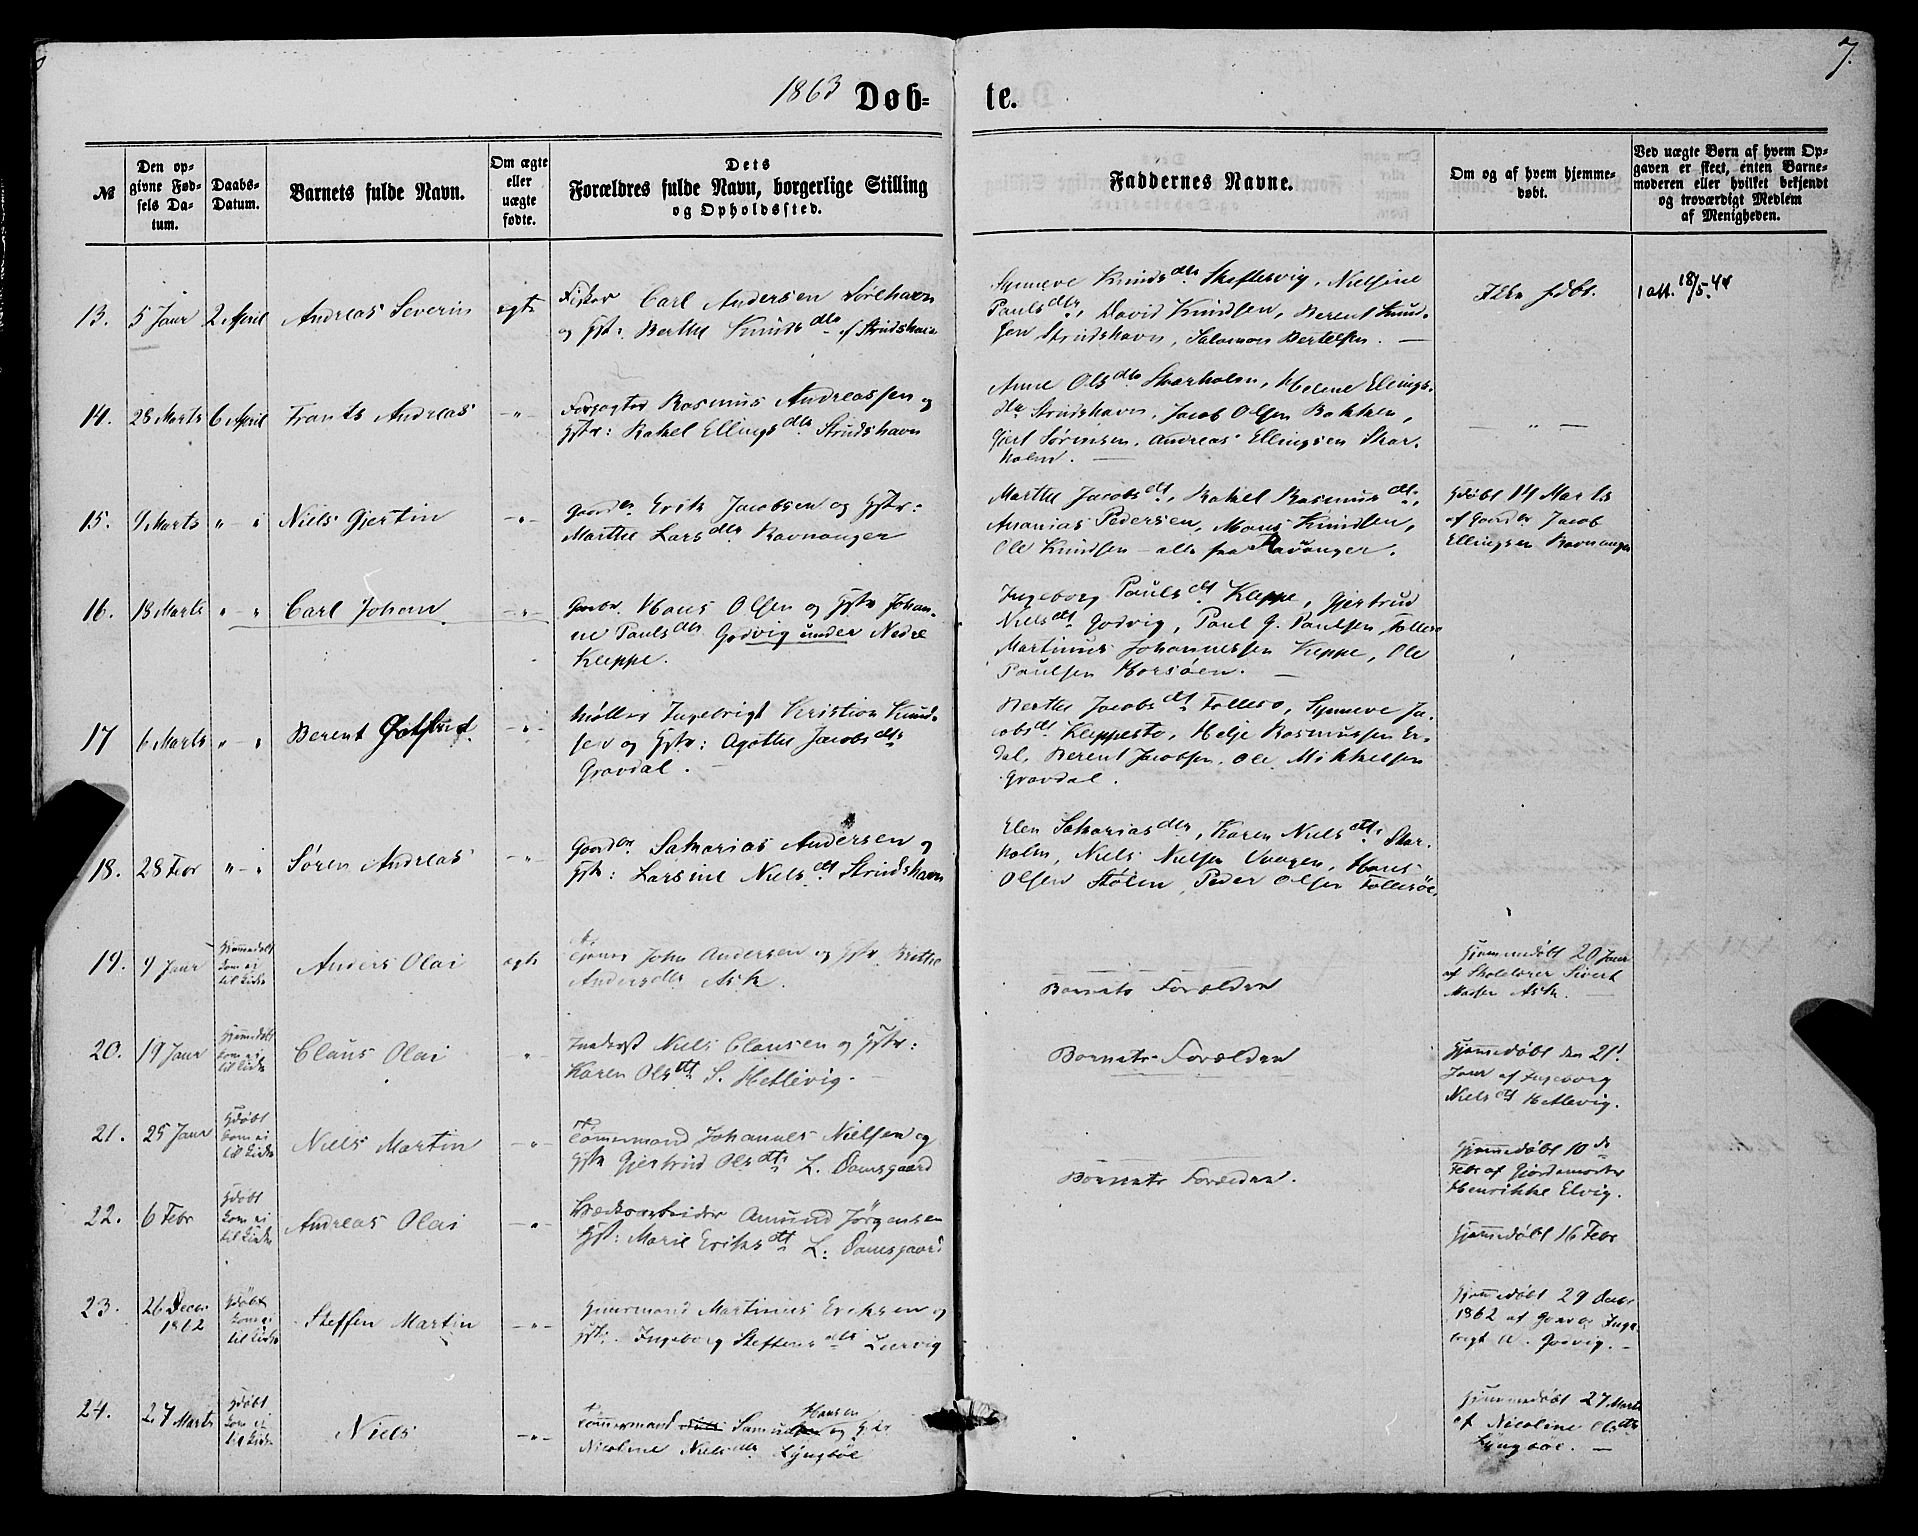 7.
1863 Døb- te.
№
Den op-
givne Fød-
sels Da-
tum.
Daabs-
Datum.
Barnets fulde Navn.
Om ægte
eller
uægte
fødte.
Dets
Forældres fulde Navn, borgerlige Stilling
og Opholdssted.
Faddernes Navne.
Om og af hvem hjemme-
døbt.
Ved uægte Børn af hvem Op-
gaven er skeet, enten Barne-
moderen eller hvilket bekjendt
og troværdigt Medlem
af Menigheden.
13. 5 Janr 2 April Andreas Severin ægte
Fisker Carl Andersen
og Hst: Berthe Knudsdtr af Strudshavn
Synneve Knudsdtr Skiftesvig, Nielsine
Paulsdtr, David Knudsen, Berent Knud-
sen Strudshavn, Salomon Bertelsen. —
Ikke hdbt.
1 att. 18/5.44
14. 28 Marts 6 April Frants Andreas -"-
Rasmus Andreassen og
Hstr: Rakel Ellingsdtr Strudshavn
Anne Olsdtr Skarholm, Helene Ellings-
dtr Strudshavn, Jacob Olsen Bakken,
Gjert Sørensen, Andreas Ellingsen Skar-
holm. —
— " —
15. 4 Marts " - " Niels Gjertin -"-
Gaardbr Erik Jacobsen og Hstr:
Marthe Larsdtr Ravnanger
Marthe Jacobsdt, Rakel Rasmusdt,
Ananias Pedersen, Mons Knudsen,
Ole Knudsen - alle fra Ravanger.
Hdøbt 14 Marts
af Gaardbr Jacob
Ellingsen Ravnanger
16. 18 Marts " - " Carl Johan -"-
Gaardbr. Hans Olsen og Hstr Johan-
ne Paulsdtr Godvig under Nedre
Kleppe.
Ingeborg Paulsdt Kleppe, Gjertrud
Nielsdt Godvig, Paul G. Paulsen Follesø
Martinus Johannessen Kleppe, Ole
Paulsen Horsøen. —
17 6 Marts " - " Berent Gotfred -"-
Møller Ingebrigt Kristian Knud-
sen og Hstr: Agathe Jacobsdtr
Gravdal. —
Berthe Jacobsdt Follesø, Synneve Ja-
cobsdt Kleppestø, Helje Rasmussen Er-
dal, Berent Jacobsen, Ole Mikkelsen
Gravdal.
18. 28 Febr " - " Søren Andreas -"-
Gaardbr Sakarias Andersen og
Hstr: Larsine Nielsdt Strudshavn
Elen Sakariasdtr, Karen Nielsdt Skar-
holm, Niels Nielsen Vaagen, Hans
Olsen Stølen, Peder Olsen Follesøe
19. 9 Janr Hjemmedøbt
kom ei
til Kirke Anders Olai ægte
Tjener John Andersen og Hstr Brithe
Andersdtr Ask.
Barnets Forældre
Hjemmedøbt 20 Janr
af Skolelærer Sivert
Ask. —
20. 19 Janr Hjemmedøbt
kom ei
til Kirke Claus Olai "
Inderst Niels Clausen og Hstr:
Karen Olsdt S. Hetlevig. —
Barnets Forældre
Hjemmedøbt den 21
Janr af Ingeborg
Nielsdt Hetlevig.
21. 25 Janr Hdøbt
kom ei
til Kirke Niels Martin -"-
Tømmermand Johannes Nielsen og
Hstr Gjertrud Olsdt L. Damsgaard
Barnets Forældre.
Hjemmedøbt 10de
Febr af Gjordemoder
Henrikke Elvig.
22. 6 Febr Hdøbt
kom ei
til Kirke Andreas Olai -"-
Amund Jørgensen
Hst: Marie Eriksdt L. Damsgaard
Hjemmedøbt 16 Febr
23. 26 Decbr
1862 Hdøbt
kom ei
til Kirke Steffen Martin -"-
Martinus Eriksen og
Hst: Ingeborg Steffensdt Leervig
Hjemmedøbt 29 Decbr
1862 af Gaardbr Inge-
brigt Godvig. —
24. 27 Marts Hdøbt
kom ei
til Kirke Niels -"-
Hansen
Tømmermand Samuel og Hstr
Nicoline Nielsdtr Lyngbøe
Hjemmedøbt 27 Marts
af Nicoline Olsdtr
Lyngbøe. —